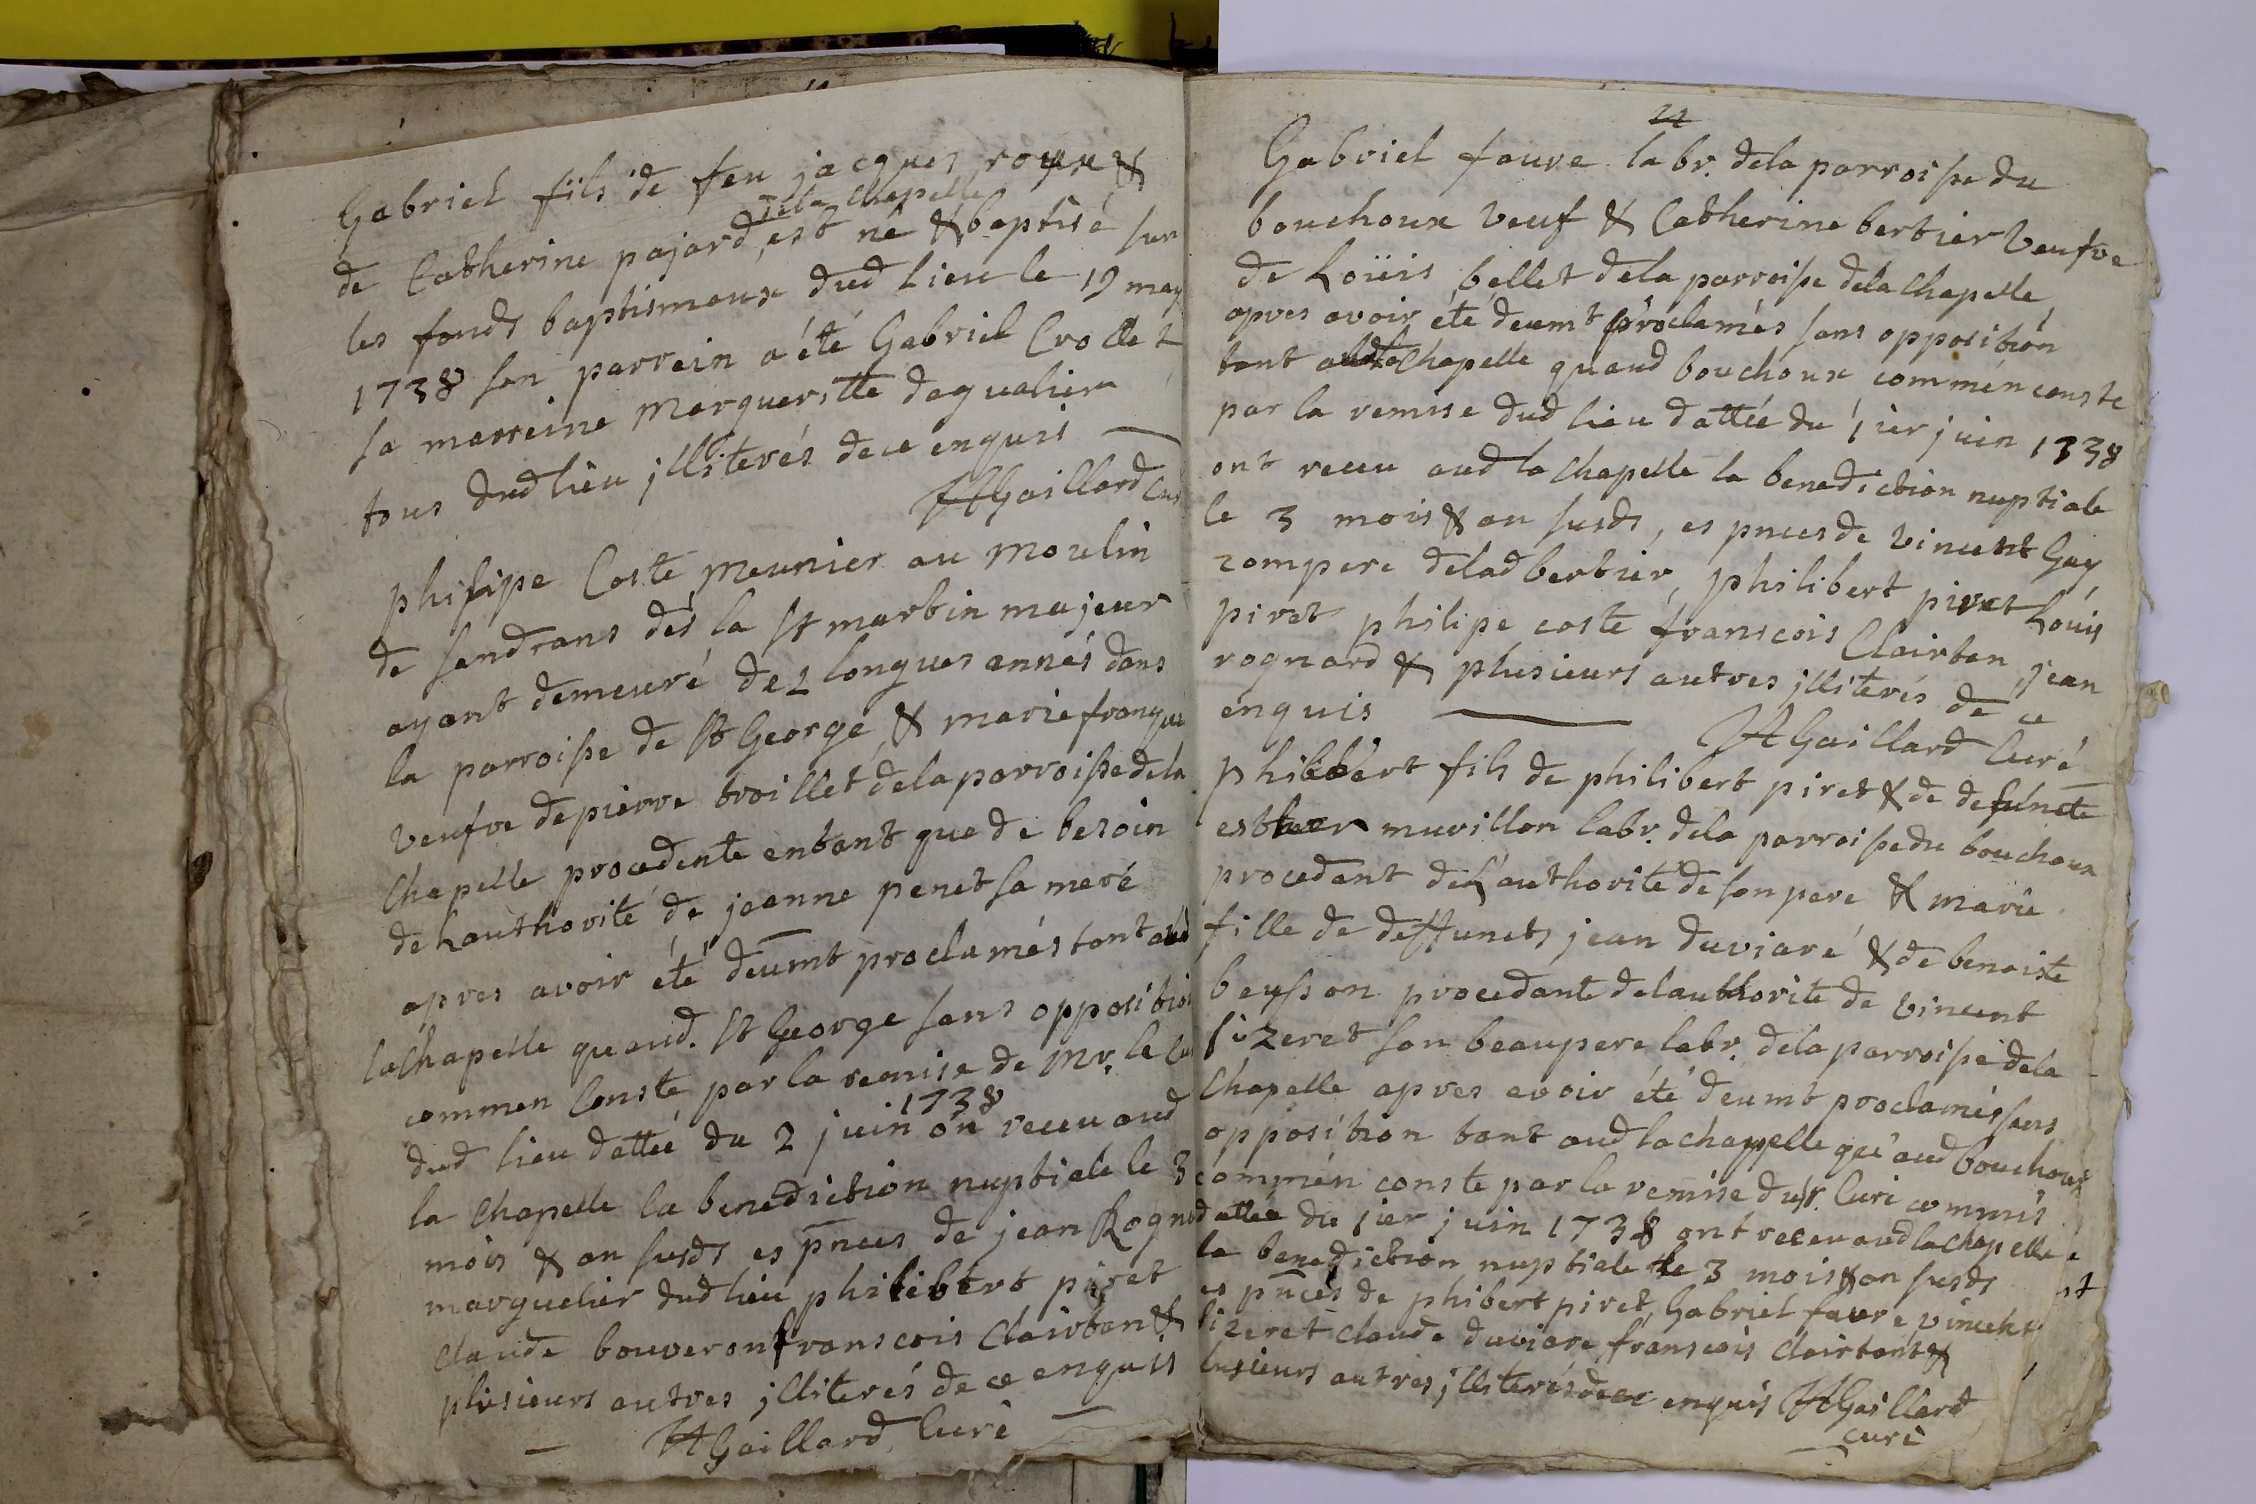 Gabriel fils de feu jacques roux &
de la Chapelle
de Catherine pajard, est né & baptisé sur
les fonds baptismaux dud lieu le 19 may
1738 son parrein a été Gabriel Crollet
sa marreine Margueritte dagualier
tous dud lieu jlliterés de ce enquis
HGaillard Curé
philipe Coste meunier au moulin
de sandrans des la st martin majeur
ayant demeuré de 2 longues annés dans
la parroisse de st George & marie franque
veufve de pierre troillet de la parroisse de la
Chapelle procedente entant que de besoin
de Lauthorité de jeanne penet sa mere
apres avoir été deumt proclamés tant aud
la Chapelle quaud. st George sans opposition
commen Conste par la remise de Mr. le Curé
1738
dud lieu dattée du 2 juin on receu aud
la Chapelle la benediction nuptiale le 3
mois & an susds es pnces de jean Rognard
marguelier dud lieu philibert piret
Claude bouveron franscois Clairton &
plusieurs autres jlliterés de ce enquis
HGaillard Curé
22
Gabriel faure labr. de la parroisse du
bouchoux veuf & Catherine bertier veufve
de Loüis bellet de la parroisse de la Chapelle
apres avoir été deumt proclamés sans opposition
tant aud la Chapelle quaud bouchoux commen conste
par la remise dud lieu dattée du 1ier juin 1738
ont receu aud la Chapelle la benediction nuptiale
le 3 mois & an susds, es pnces de vincent Gay
compere de lad bertier, philibert piret Loüis
piret philipe coste franscois Clairton, jean
rognard & plusieurs autres jlliterés de ce
enquis
HGaillard Curé
philibert fils de philibert piret & de defuncte
esther muvillon labr. de la parroisse du bouchoux
procedant de L'authorité de son pere & marie
fille de deffuncts jean duviaré & de benoiste
beysson procedante de lauthorité de vincent
lizeret son beaupere labr. de la parroisse de la
Chapelle apres avoir été deumt proclamés sans
opposition tant aud la chappelle qu'aud bouchoux
commen conste par la remise du sr. Curé commis
dattée du 1ier juin 1738 ont receu aud la chapelle
la benediction nuptiale le 3 mois & an susds
es pnces de phibert piret, Gabriel faure vincent
lizeret claude duviare franscois Clairton &
plusieurs autres jlliterés de ce enquis HGaillard
Curé